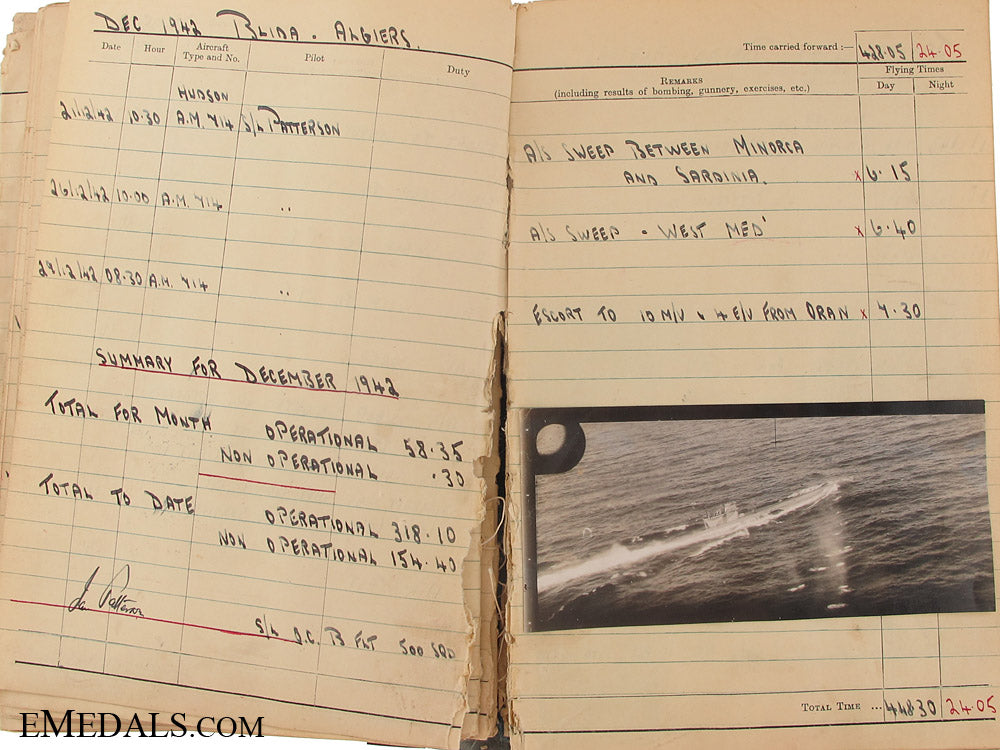 DEC 1942 BLIDA - ALGIERS.
Date Hour Aircraft Type and No. Pilot Duty
HUDSON
21.12.42 10.30 A.M. 714 S/L PATTERSON
26/12/42 10.00 A.M. 714 "
29/12/42 08.30 A.M. 714 "
SUMMARY FOR DECEMBER 1942
TOTAL FOR MONTH OPERATIONAL 58.35
NON OPERATIONAL .30
TOTAL TO DATE
OPERATIONAL 318.10
NON OPERATIONAL 154.40
Ian Patterson
S/L O.C. B FLT 500 SQD
Time carried forward :— 428.05 24.05
Flying Times
REMARKS
(including results of bombing, gunnery, exercises, etc.)
Day Night
A/S SWEEP BETWEEN MINORCA
AND SARDINIA. x 6.15
A/S SWEEP - WEST MED' x 6.40
ESCORT TO 10 M/V & 4 E/V FROM ORAN x 7.30
TOTAL TIME ... 448.30 24.05
EMEDALS.COM